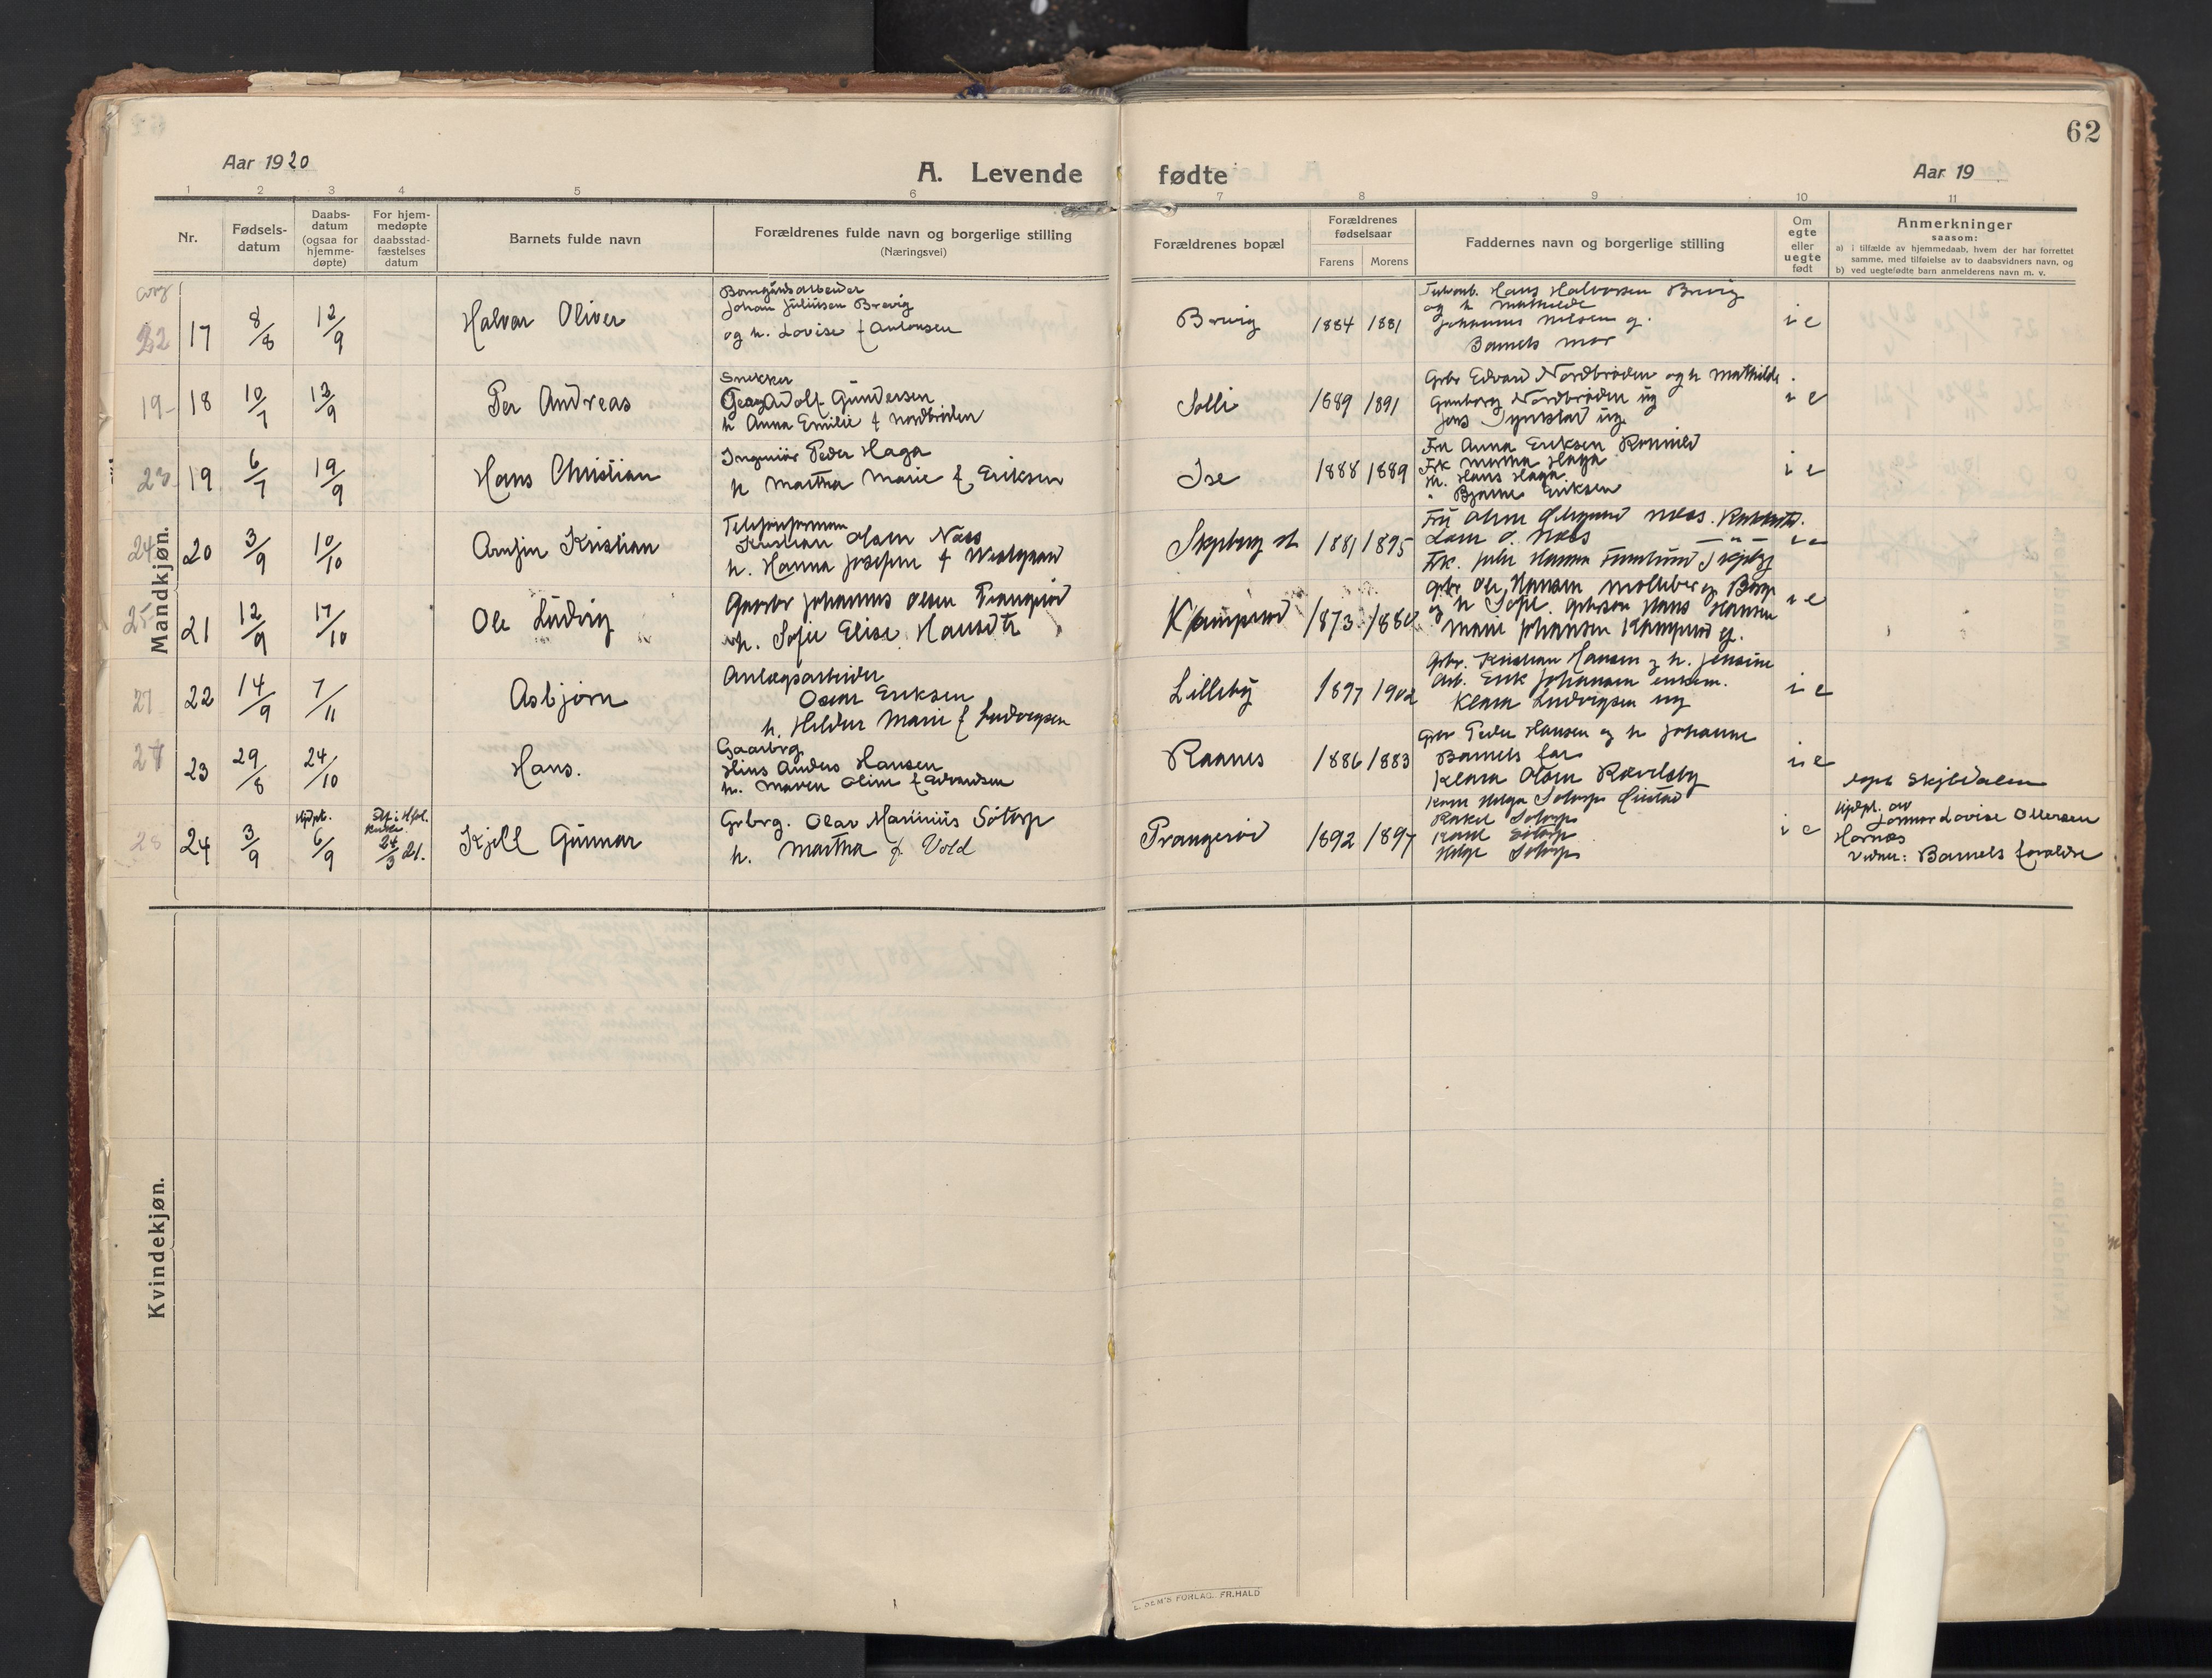 62
Aar 1920
A. Levende fødte
Aar 19
1 2 3 4 5 6 7 8 9 10 11
Nr.
Fødsels-
datum
Daabs-
datum
(ogsaa for
hjemme-
døpte)
For hjem-
medøpte
daabsstad-
fæstelses
datum
Barnets fulde navn
Forældrenes fulde navn og borgerlige stilling
(Næringsvei)
Forældrenes bopæl
Forældrenes
fødselsaar
Farens Morens
Faddernes navn og borgerlige stilling
Om
egte
eller
uegte
født
Anmerkninger
saasom:
a) i tilfælde av hjemmedaab, hvem der har forrettet
samme, med tilføielse av to daabsvidners navn, og
b) ved uegtefødte barn anmelderens navn m. v.
Mandkjøn.
22 17 8/8 12/9 Halvor Oliver
Bomgårdsarbeider
Johan Juliussen Brevig
og h. Lovise f Antonsen
Brevig 1884 1881
Hans Halvorsen Brevig
og h Mathilde
Johannes Nilsen g.
Barnets mor
i e
19 18 10/7 12/9 Per Andreas
Snekker
Georg Adolf Gundersen
h Anna Emilie f Nordbrøden
Solli 1889 1891
Grbr Edvard Nordbrøden og h Mathilde.
Gunborg Nordbrøden ug
Jens ug
i e
23 19 6/7 19/9 Hans Christian
Ingeniør Peder Haga
h Martha Marie f Eriksen
Ise 1888 1889
Fru Anna Eriksen
Frk Martha Haga
Hr. Hans Haga
" Bjarne Eriksen
i e
24 20 3/9 10/10 Arnfin Kristian
Telefonformann
Kristian Olsen Næss
h. Hanna Josefine f Westgaard
Skjeberg st 1881 1895
Fru Næss.
O. Næss — " —
Frk. Hanna
i e
25 21 12/9 17/10 Ole Ludvig
Gaardbr Johannes Olsen Prangerød
h. Sofie Elise Hansdtr
Kampерød 1873 188
Grbr. Ole Hansen
og h Sofie. Grbrsøn Hans Hansen
Marie Johansen g.
i e
27 22 14/9 7/11 Asbjørn
Anlægsarbeider
Oscar Eriksen
h. Hilda Marie f Ludvigsen
Lilleby 1897 1902
Grbr. Kristian Hansen og h. Jensine
Arb. Erik Johansen enkem.
Klara Ludvigsen ug
i e
23 29/8 24/10 Hans.
Gaarbrg
Hans Anders Hansen
h. Maren Oline f Edvardsen
Raanes 1886 1883
Grbr Peder Hansen og h Johanne
Barnets far
Klara Olsen
i e
Skjeldalen
28 24 3/9 Hjdpt. 6/9 Stf. i kirke 24/3 21. Kjell Gunnar
Grbrg. Olav Marinius Søtorp
h. Martha f. Vold
Prangerød 1892 1897
Helga Søtorp
Rakel Søtorp
Karl Søtorp
Helge Søtorp
i e
Hjdpt. av
Jormor Lovise Ottersen
Hornæs
Vidner: Barnets forældre
Kvindekjøn.
FORLAG. FR.HALD